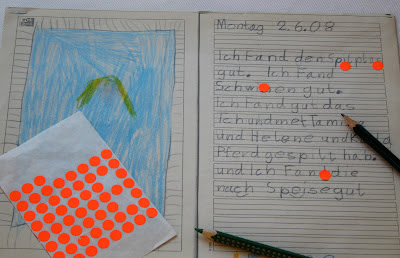 Montag 2.6.08
Ich Fand den Spilpla
gut. Ich Fand
Schwimen gut.
Ich Fand gut das
Ich und met Fami
und Helene und
Pferd gespilt hab.
und Ich Fand die
nach Speisegut